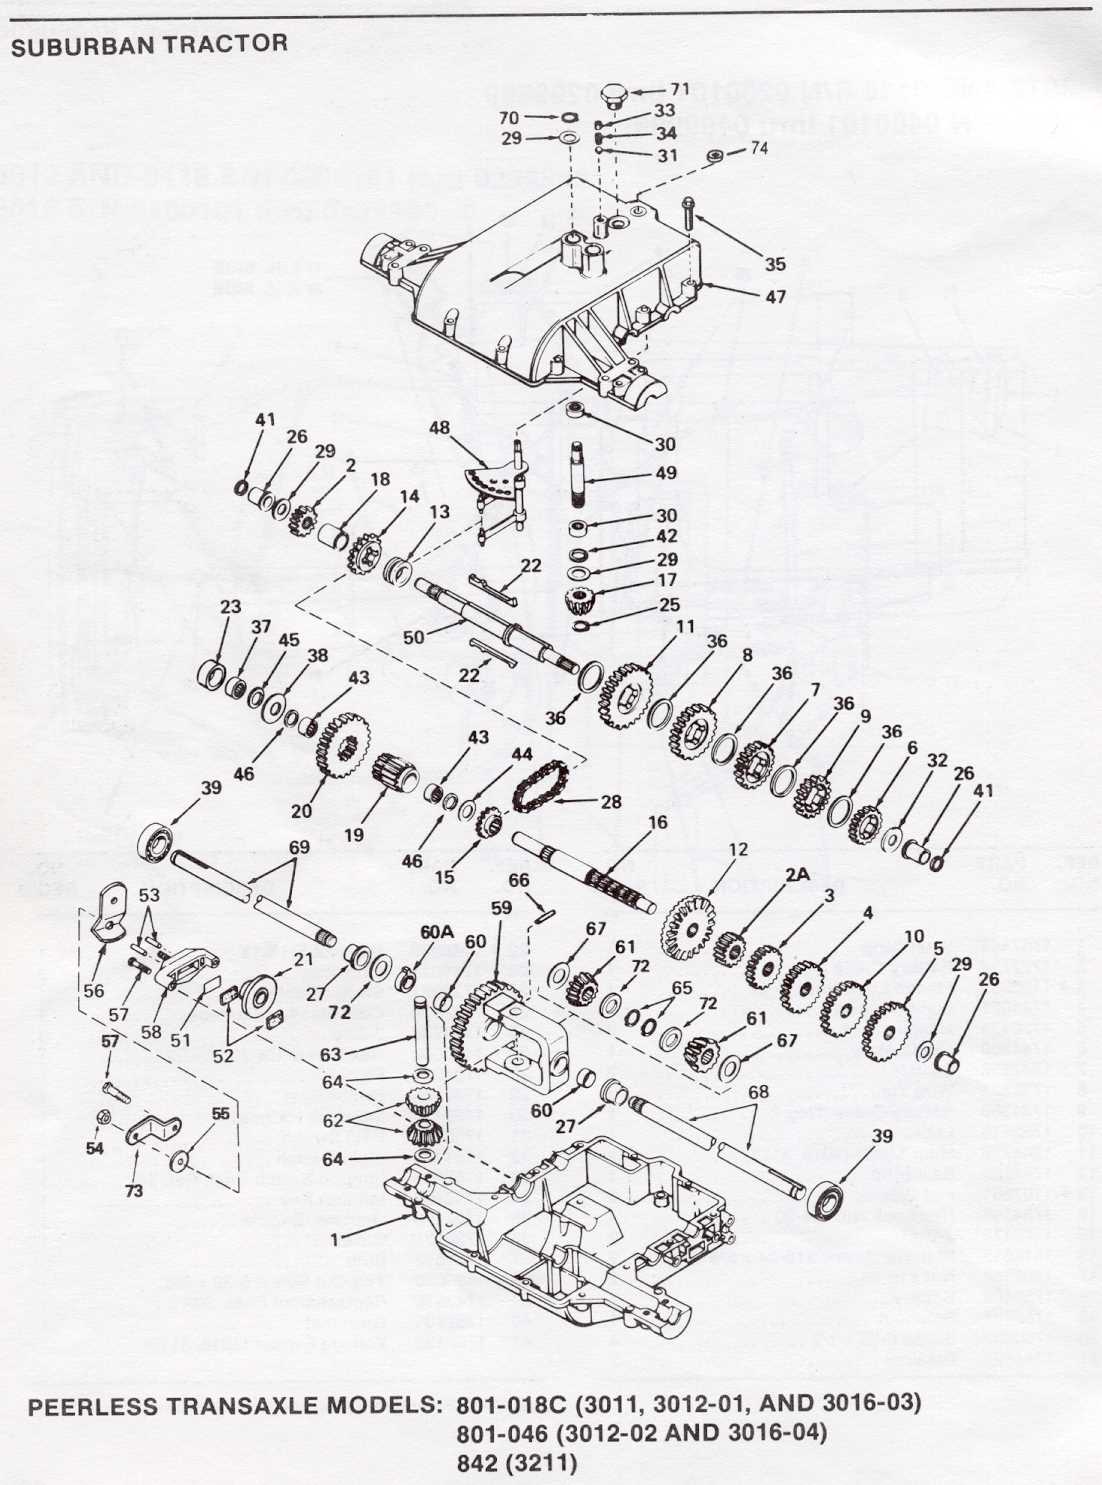 SUBURBAN TRACTOR
71
70
33
29
34
31
74
35
47
41
26
29
2
18
14
13
48
30
49
30
42
29
17
25
22
50
22
11
36
8
36
7
36
9
36
6
32
26
41
36
23
37
45
38
43
46
20
19
43
44
46
15
28
16
39
69
66
59
12
2A
3
4
10
5
29
26
53
56
57
58
51
52
21
27
72
60A
60
67
61
72
65
72
61
67
63
64
62
64
60
27
68
39
57
54
55
73
1
PEERLESS TRANSAXLE MODELS: 801-018C (3011, 3012-01, AND 3016-03)
801-046 (3012-02 AND 3016-04)
842 (3211)